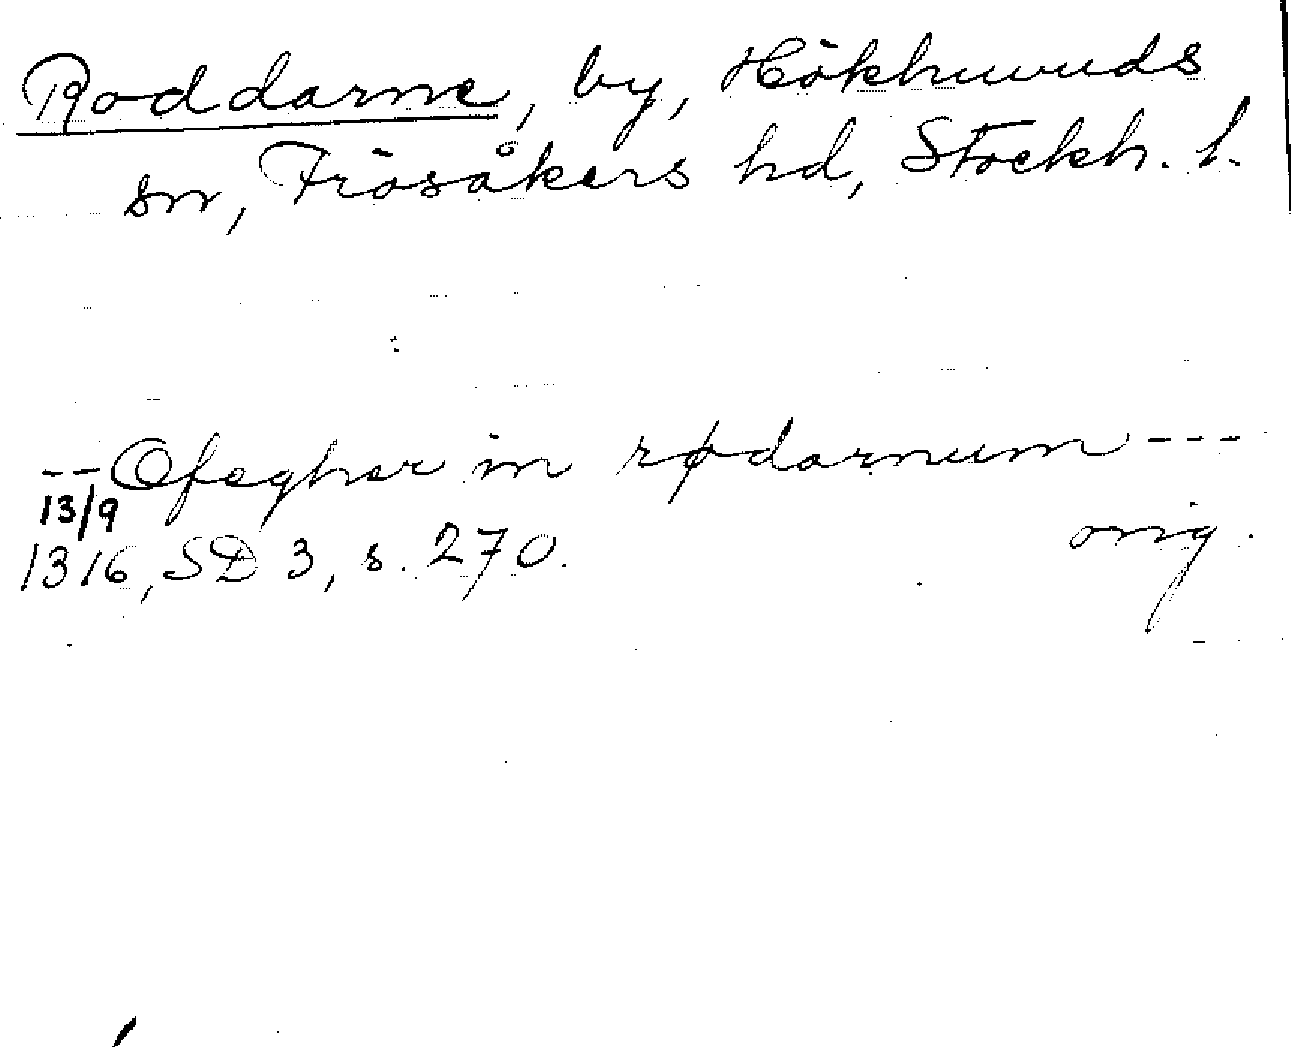 Roddarne, by, Hökhuvuds
sn, Frösåkers hd, Stockh. l.
-- Ofeghar in rødarnum ---
13/9
1316, SD 3, s. 270.
orig.